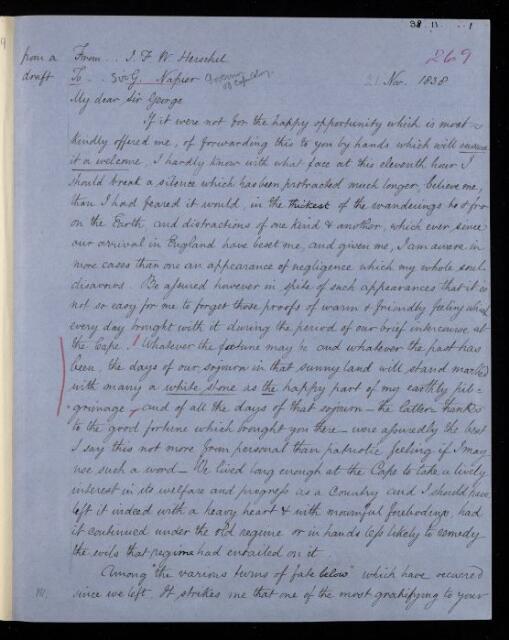 38 11 1
269
from a draft
From .. J. F. W. Herschel
To .. Sir G. Napier Governor of Cape Colony
21 Nov. 1838
My dear Sir George
If it were not for the happy opportunity which is most
kindly offered me, of forwarding this to you by hands which will ensure
it a welcome, I hardly know with what face at this eleventh hour I
should break a silence which has been protracted much longer, believe me,
than I had feared it would, in the thickest of the wanderings to & fro
on the Earth and distractions of one kind & another, which ever since
our arrival in England have beset me, and given me, I am aware in
more cases than one an appearance of negligence which my whole soul
disavows. Be assured however in spite of such appearances that it is
not so easy for me to forget those proofs of warm & friendly feeling which
every day brought with it during the period of our brief intercourse at
the Cape. Whatever the future may be and whatever the past has
been, the days of our sojourn in that sunny land will stand marked
with many a white stone as the happy part of my earthly pil-
grimage, and of all the days of that sojourn – the latter thanks
to the good fortune which brought you there – were assuredly the best
I say this not more from personal than patriotic feeling if I may
use such a word – We lived long enough at the Cape to take a lively
interest in its welfare and progress as a Country and I should have
left it indeed with a heavy heart & with mournful forebodings, had
it continued under the old regime or in hands less likely to remedy
the evils that regime had entailed on it.
Among "the various turns of fate below" which have occurred
since we left, It strikes me that one of the most gratifying to your